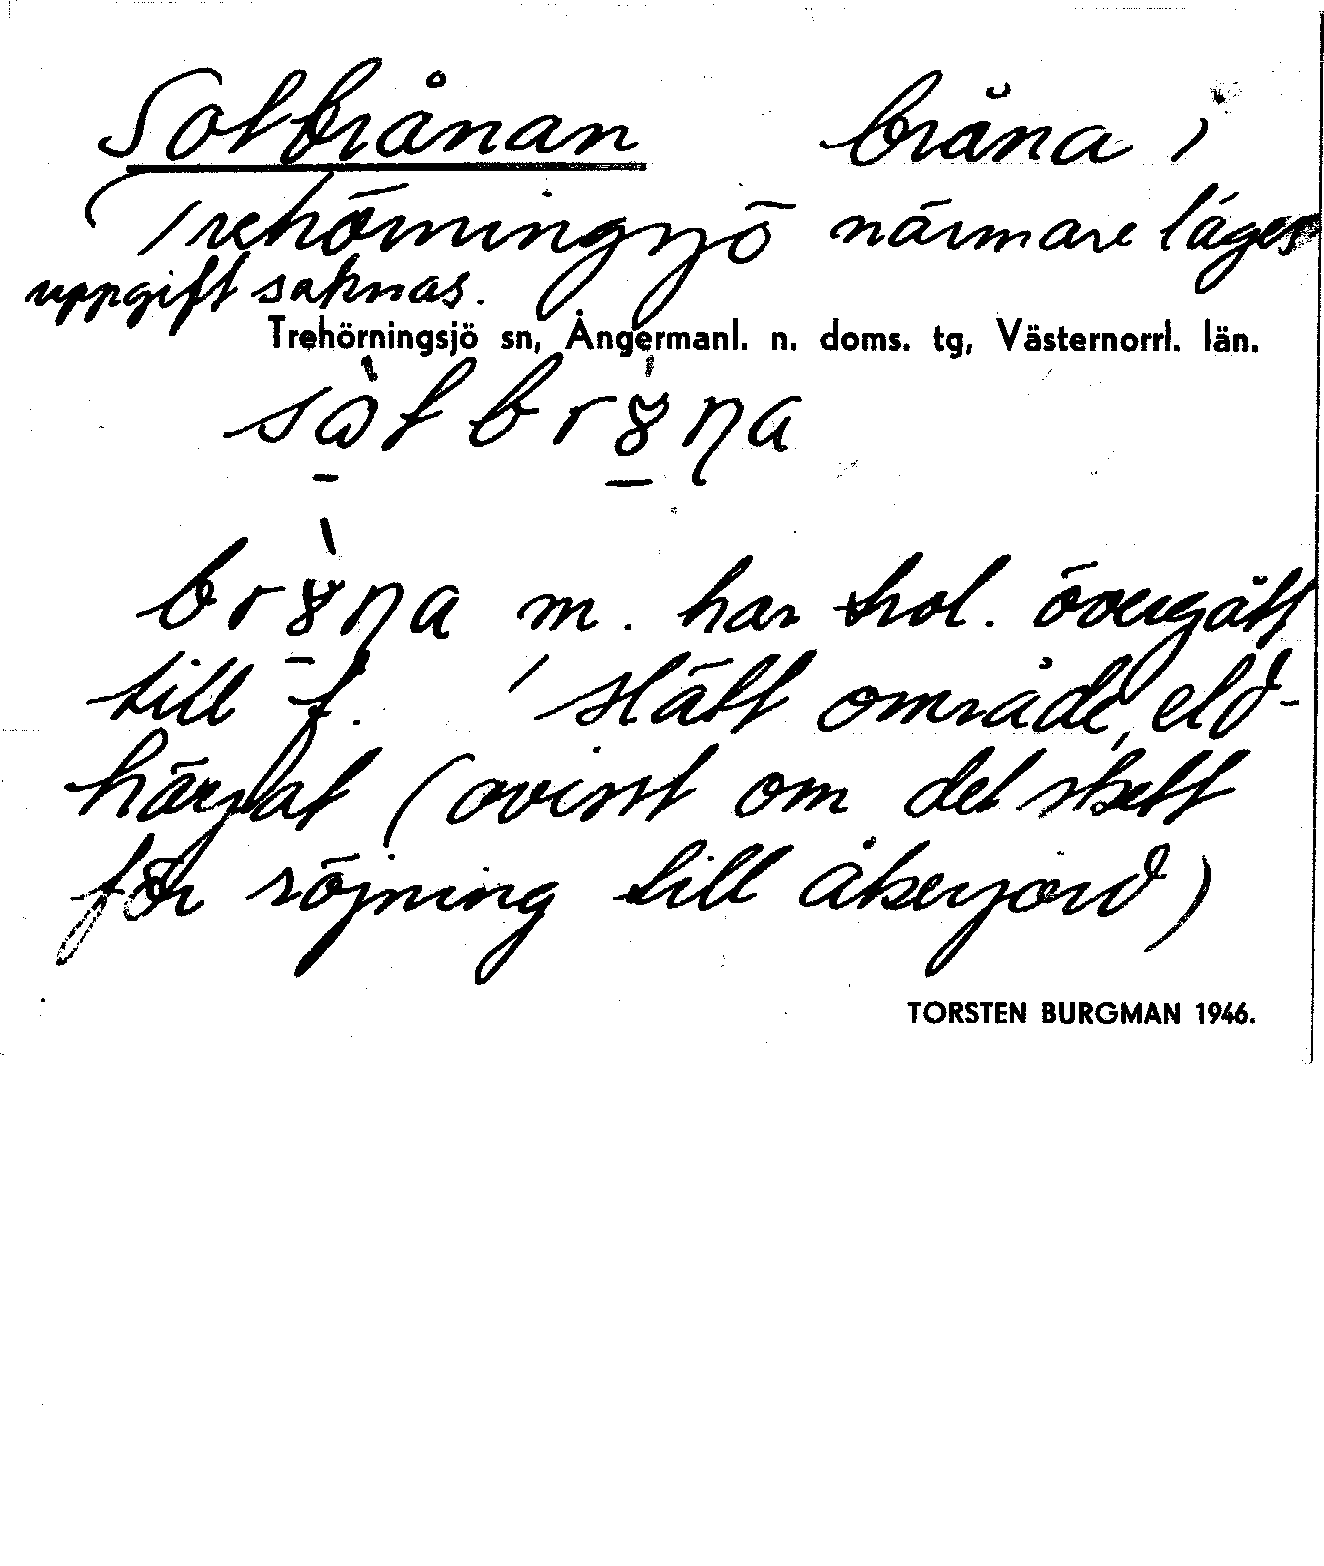 Sotbrånan bråna i
Trehörningsjö närmare läges
uppgift saknas.
Trehörningsjö sn, Ångermanl. n. doms. tg, Västernorrl. län.
m. har trol. övergått
till f. ' slätt område, eld-
härjat (ovisst om det skett
för röjning till åkerjord)
TORSTEN BURGMAN 1946.